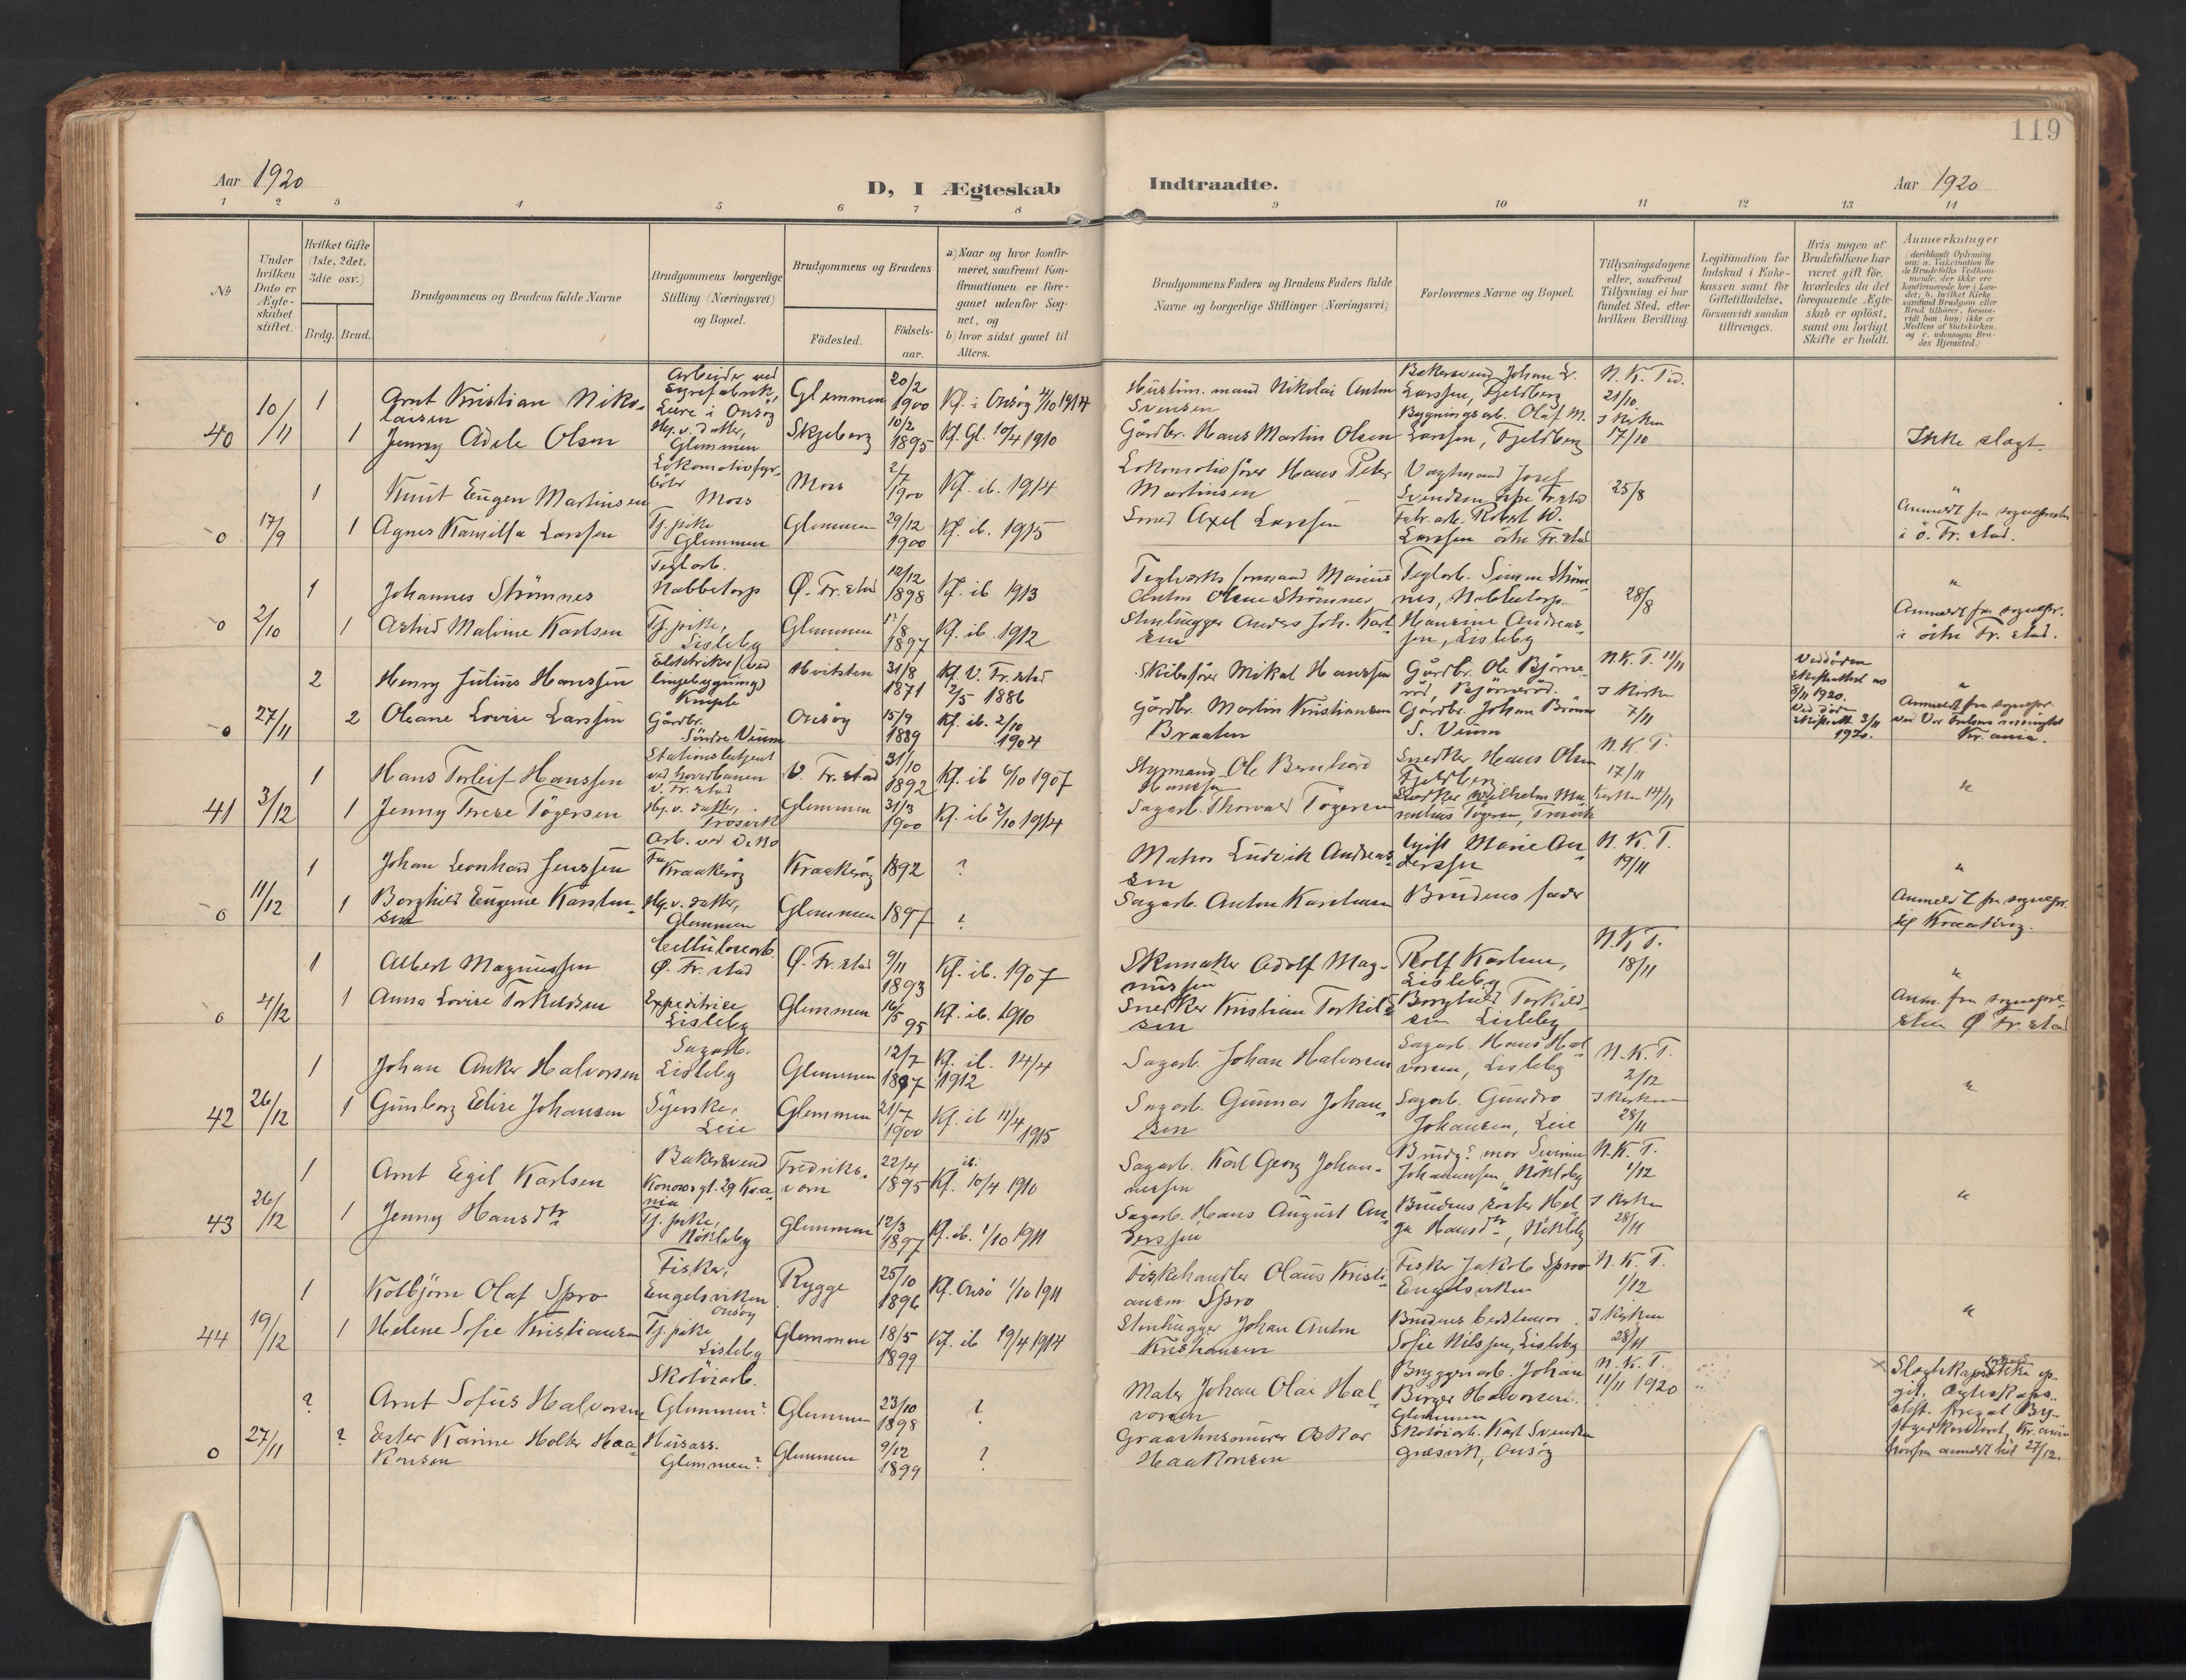 119
Aar 1920
D, I Ægteskab Indtraadte.
Aar 1920
1 2 3 4 5 6 7 8 9 10 11 12 13 14
No
Under hvilken Dato er Ægteskabet stiftet.
Hvilket Gifte (1ste, 2det, 3die osv.)
Brdg. Brud.
Brudgommens og Brudens fulde Navne
Brudgommens borgerlige Stilling (Næringsvei) og Bopæl.
Brudgommens og Brudens
Födested.
Födsels-aar.
a) Naar og hvor konfir-
meret, saafremt Kon-
firmationen er fore-
gaaet udenfor Sog-
net, og
b) hvor sidst gaaet til
Alters.
Brudgommens Faders og Brudens Faders fulde
Navne og borgerlige Stillinger (Næringsvei)
Forlovernes Navne og Bopæl.
Tillysningsdagene
eller, saafremt
Tillysning ei har
fundet Sted, efter
hvilken Bevilling.
Legitimation for
Indskud i Enke-
kassen samt for
Giftetilladelse,
forsaavidt saadan
tiltrænges.
Hvis nogen af
Brudefolkene har
været gift för,
hvorledes da det
foregaaende Ægte-
skab er oplöst,
samt om lovligt
Skifte er holdt.
Anmærkninger
40 10/11 1 Arnt Kristian Niko-
laisen
Arbeider ved
Syrefabrik,
Lere i Onsøy
Glemmen 20/2 1900 Kf. i Onsøy 4/10 1914
Husm. mand Nikolai Anton
Svensen
Bakersvend Johan L.
Larssen, Fjeldberg
N. K. Tid.
21/10
1 Jenny Adele Olsen
Hj. v. datter,
Glemmen
Skjeberg 10/2 1895 Kf. Gl. 10/4 1910
Gårdbr. Hans Martin Olsen
Bygningsarb. Olaf M.
Larssen, Fjeldberg
I Kirken
17/10
Ikke slagt
0 17/9 1 Knut Eugen Martinsen
Lokomotivfyr-
böter
Moss
Moss 2/7 1900 Kf. ib. 1914
Lokomotivfører Hans Peter
Martinsen
Vagtmand Josef
Svendsen östre Fr.stad
25/8
"
1 Agnes Kamilla Larssen
Tj. pike
Glemmen
Glemmen 29/12 1900 Kf. ib. 1915
Smed Axel Larssen
Fabr. arb. Robert W.
Larssen östre Fr. stad
Anmeldt fra sogneprsten
i ö. Fr. stad.
0 2/10 1 Johannes Strömnes
Teglarb.
Nabbetorp
Ø. Fr. stad 12/12 1898 Kf. ib 1913
Teglverks formand Marius
Anton Olsen Strömnes
Teglarb. Simon Ström-
nes, Nabbetorp
28/8
"
1 Astrid Malvine Karlsen
Tj. pike,
Lisleby
Glemmen 1897 Kf. ib. 1912
Stenhugger Anders Joh. Karl-
sen
Hansine Andreas-
sen, Lisleby
Anmeldt fra sognepr.
i östre Fr. stad.
0 27/11 2 Henry Julius Hanssen
Elektriker (ved
linjebygning)
Kniple
Hvitsten 31/8 1871 Kf. V. Fr. stad
2/5 1886
Skibsfører Mikal Hanssen
Gårdbr. Ole Björne-
röd, Björneröd.
N. K. T. 11/11
Ved döden
8/11 1920.
"
2 Oleane Lovise Larssen
Gårdbr.
Söndre Veum
Onsøy 15/9 1889 Kf. ib. 2/10
1904
Gårdbr. Martin Kristiansen
Braaten
Gårdbr. Johan Bröun
S. Veum
I Kirken
7/11
Ved död
skifteatt. 3/11
1920.
Anmeldt fra sognepr.
ved Vor Frelsers menighet
Kr.ania.
41 3/12 1 Hans Torleif Hanssen
Stationsbetjent
ved hovedbanen
V. Fr. stad
V. Fr. stad 31/10 1892 Kf. ib 6/10 1907
Styrmand Ole Bernhard
Hanssen
Snedker Hans Olsen
Fjeldberg
N. K. T.
17/11
"
1 Jenny Terese Tögersen
Hj. v. datter,
Trosvik
Glemmen 31/3 1900 Kf. ib 4/10 1914
Sagarb. Thorvald Tögersen
Snedker Wilhelm Ma-
rentius Tögersen, Trosvik
Kirken 14/11
0 11/12 1 Johan Leonhard Jenssen
Arb. ved DeNo
Fa
Kraakerøy
Kraakerøy 1892 ?
Matros Ludvik Andreas-
sen
Gift Marie An-
derssen
N. K. T.
19/11
"
1 Borghild Eugenie Karsten-
sen
Hj. v. datter,
Glemmen
Glemmen 1897 ?
Sagarb. Anton Karstensen
Brudens fader
Anmeldt fra sognepr.
til Kraakerøy.
0 4/12 1 Albert Magnussen
Cellulosearb.
Ø. Fr. stad
Ø. Fr. stad 9/11 1893 Kf. ib. 1907
Skomaker Adolf Mag-
nussen
Rolf Karlsen,
Lisleby
N. K. T.
18/11
"
1 Anna Lovise Torkildsen
Expeditrice
Lisleby
Glemmen 16/5 95 Kf. ib. 1910
Snedker Kristian Torkild-
sen
Borghild Torkild-
sen Lisleby
Anm. fra sognepre-
sten Ø Fr. stad
42 26/12 1 Johan Anker Halvorsen
Sagarb.
Lisleby
Glemmen 12/7 1897 Kf. ib. 14/4
1912
Sagarb. Johan Halvorsen
Sagarb. Hans Hal-
vorsen, Lisleby
N. K. T.
2/12
"
1 Gunborg Elise Johansen
Syerske,
Leie
Glemmen 21/7 1900 Kf. ib 11/4
1915
Sagarb. Gunnar Johan-
sen
Sagarb. Gundro
Johansen, Leie
I Kirken
28/11
43 26/12 1 Arnt Egil Karlsen
Bakersvend
Konowsgt. 29 Kr.a-
nia
Fredriks-
vern
22/4 1895 Kf. ib. 10/4 1910
Sagarb. Karl Georg Johan-
nessen
Brudg.s mor
Johannessen, Nökleby
N. K. T.
1/12
"
1 Jenny Hansdtr
Tj. pike,
Nökleby
Glemmen 12/3 1897 Kf. ib. 1/10 1911
Sagarb. Hans August An-
derssen
Brudens söster Hel-
ga Hansdtr, Nökleby
I Kirken
28/11
44 19/12 1 Kolbjörn Olaf Spro
Fisker,
Engelsviken
Onsøy
Rygge 25/10 1896 Kf. Onsø 1/10 1911
Fiskehandler Olaus Kristi-
ansen Spro
Fisker Jakob Sproo
Engelsviken
N. K. T.
1/12
"
1 Helene Sofie Kristiansen
Tj. pike
Lisleby
Glemmen 18/5 1899 Kf. ib 19/4 1914
Stenhugger Johan Anton
Kristiansen
Brudens bedstemor
Sofie Nilssen, Lisleby
I Kirken
28/11
0 27/11 ? Arnt Sofus Halvorsen
Skotöiarb.
Glemmen?
Glemmen 23/10 1898 ?
Maler Johan Olai Hal-
vorsen
Bryggeriarb. Johan
Birger Halvorsen.
Glemmen
N. K. T.
11/11 1920
? Ester Karine Holter Haa-
konsen
Husass.
Glemmen?
Glemmen 9/12 1899 ?
Graastensmurer Oskar
Haakonsen
Skotöiarb. Karl Svendsen
Græsvik, Onsøy
× Slegtskap ikke op-
git. Ægteskaps-
stift. Kr.ania
herfra anmeldt hit 27/12.